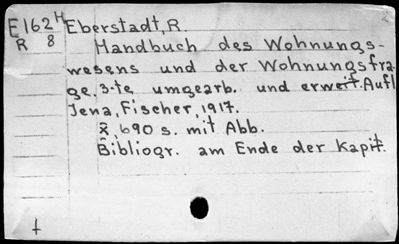 E162H Eberstadt, R.
R 8 Handbuch des Wohnungs-
wesens und der Wohnungsfra-
ge, 3-te umgearb. und erweit. Aufl
Jena, Fischer, 1917.
X, 690 s. mit Abb.
Bibliogr. am Ende der Kapit.